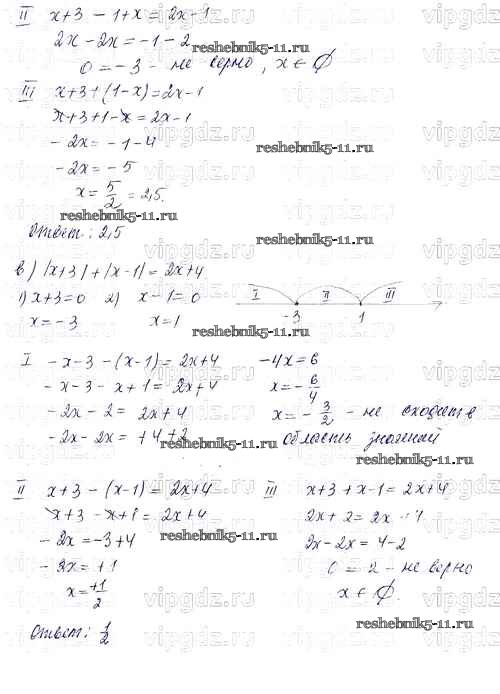 II x+3 - 1+x = 2x-1
2x - 2x = -1 - 2
0 = -3 - не верно, x ∈ ∅
III x+3+(1-x)=2x-1
x+3+1-x = 2x-1
-2x = -1-4
-2x = -5
x = 5/2 = 2,5.
Ответ: 2,5
в) |x+3|+|x-1| = 2x+4
1) x+3=0 2) x-1=0
x = -3 x=1
I II III
-3 1
I -x-3 -(x-1) = 2x+4
-x-3-x+1 = 2x+4
-2x-2 = 2x+4
-2x-2x = +4+2
-4x=6
x=-6/4
x=-3/2 - не входит в
область значений
II x+3-(x-1) = 2x+4
x+3-x+1 = 2x+4
-2x=-3+4
-2x=+1
x=+1/2
III x+3+x-1=2x+4
2x+2=2x+4
2x-2x=4-2
0 = 2 - не верно
x ∈ ∅.
Ответ: 1/2
vipgdz.ru
reshebnik5-11.ru